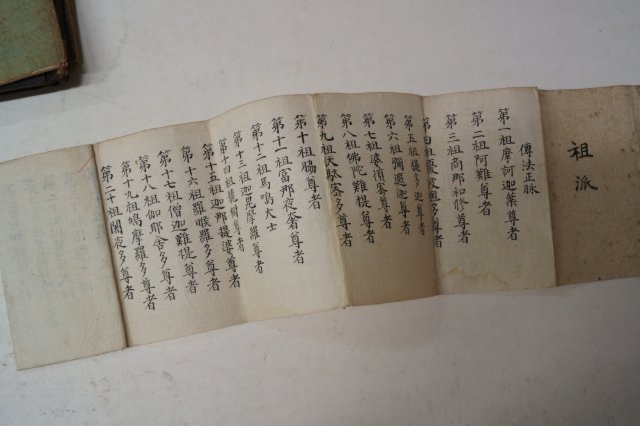 祖派
傳法正脉
第一祖摩訶迦葉尊者
第二祖阿難尊者
第三祖商那和修尊者
第四祖優波毱多尊者
第五祖提多迦尊者
第六祖彌遮迦尊者
第七祖婆須密尊者
第八祖佛陀難提尊者
第九祖伏駄密多尊者
第十祖脇尊者
第十一祖富那夜奢尊者
第十二祖馬鳴大士
第十三祖迦毘摩羅尊者
第十四祖龍樹尊者
第十五祖迦那提婆尊者
第十六祖羅睺羅多尊者
第十七祖僧迦難提尊者
第十八祖伽耶舍多尊者
第十九祖鳩摩羅多尊者
第二十祖闍夜多尊者